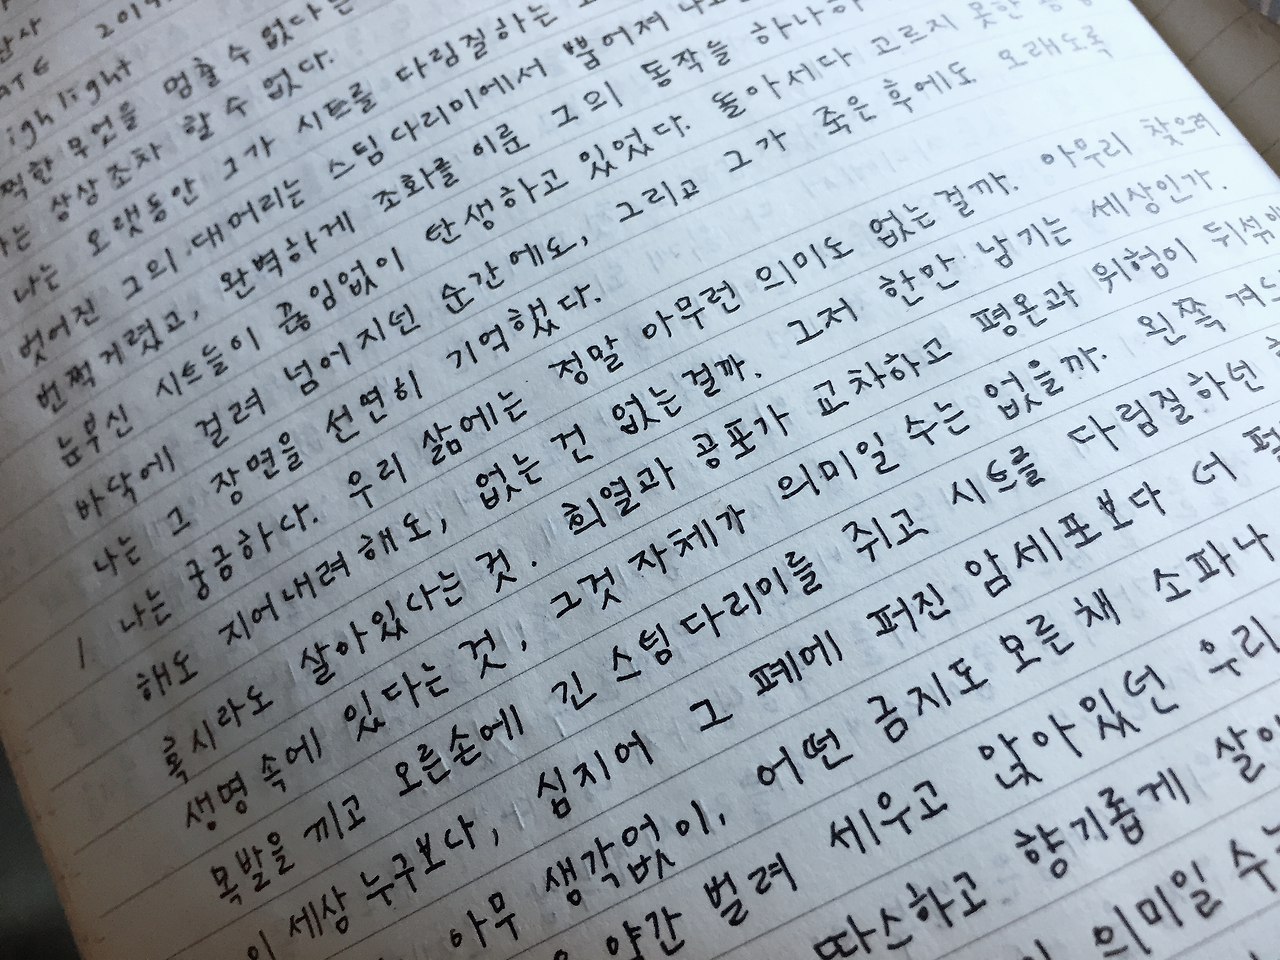 ATE 2019.
ighlight
무언을 멈출 수 없다는
는 상상조차 할 수 없다.
나는 오랫동안 그가 시트를 다림질하는
벗어진 그의 대머리는 스팀다리미에서 뿜어져 나오
번쩍거렸고, 완벽하게 조화를 이룬 그의 동작들 하나하
눈부신 시트들이 끊임없이 탄생하고 있었다. 돌아세다 고르지 못한
바닥에 걸려 넘어지던 순간에도, 그리고 그가 죽은 후에도 오래도록
나는 그 장면을 선연히 기억했다.
나는 궁금하다. 우리 삶에는 정말 아무런 의미도 없는걸까. 아무리 찾으려
해도 지어내려해도, 없는 건 없는걸까. 그저 한만 남기는 세상인가.
혹시라도 살아있다는 것. 희열과 공포가 교차하고 평온과 위험이 뒤섞이
생명 속에 있다는 것, 그것 자체가 의미일 수는 없을까. 왼쪽 겨드
목발을 끼고 오른손에 긴 스팀다리미를 쥐고 시트를 다림질하던
이 세상 누구보다, 심지어 그 폐에 퍼진 암세포보다 더
아무 생각없이, 어떤 금지도 모른채 소파나
약간 벌려 세우고 앉아있던 우리
따스하고 향기롭게 살아
의미일 수는